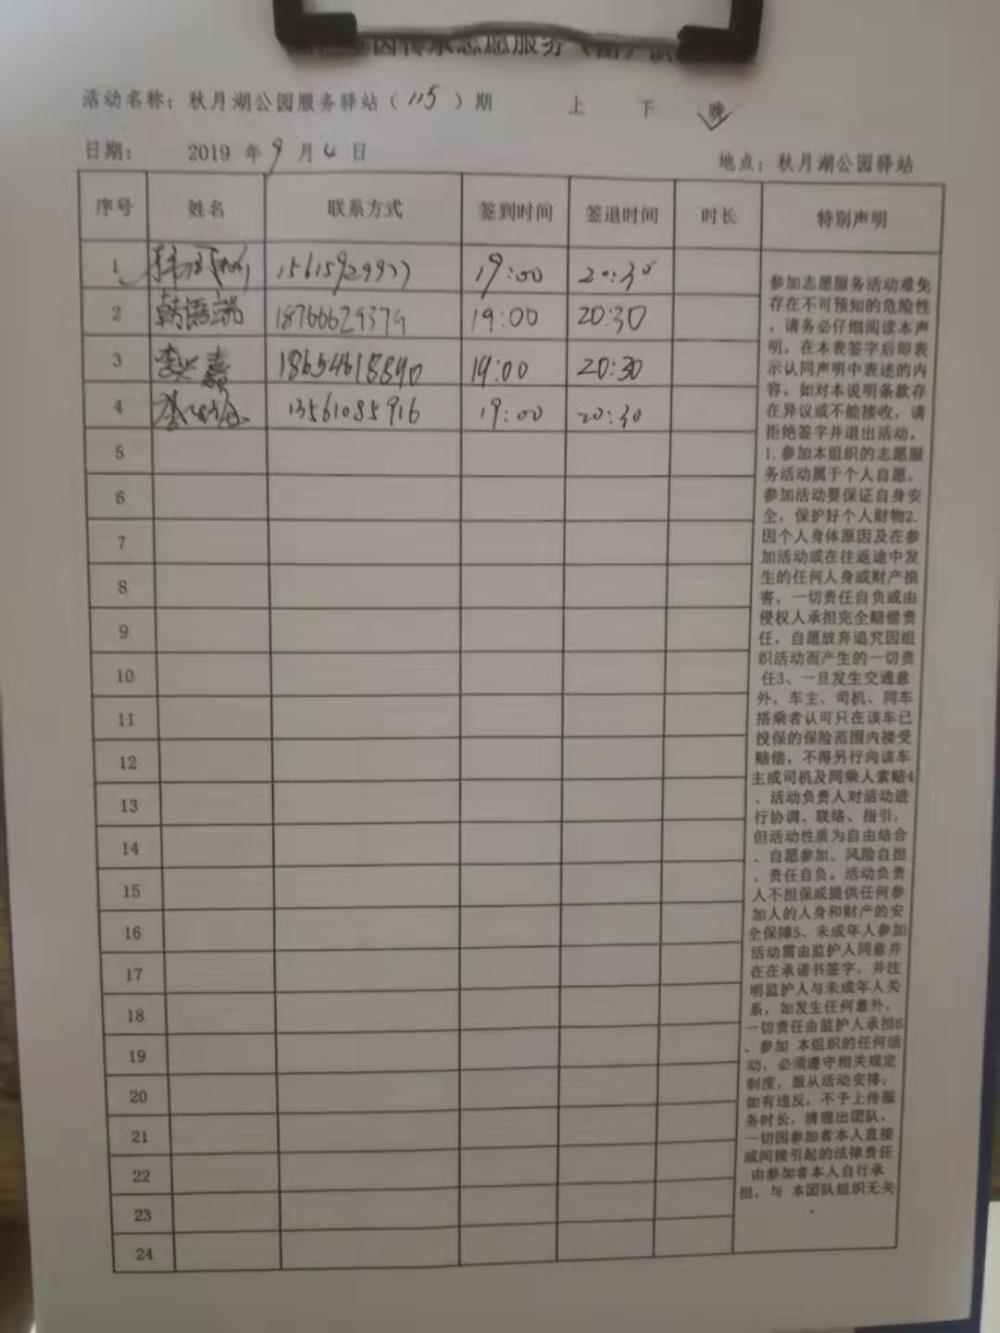 志愿服务
活动名称：秋月湖公园服务驿站（115）期 上 下 晚
日期： 2019 年 9 月 4 日
地点：秋月湖公园驿站
序号 姓名 联系方式 签到时间 签退时间 时长 特别声明
1 15615929977 19:00 20:30
2 韩语端 18766629379 19:00 20:30
3 18654618890 19:00 20:30
4 13561085916 19:00 20:30
5
6
7
8
9
10
11
12
13
14
15
16
17
18
19
20
21
22
23
24
参加志愿服务活动难免
存在不可预知的危险性
，请务必仔细阅读本声
明，在本表签字后即表
示认同声明中表述的内
容，如对本说明条款存
在异议或不能接收，请
拒绝签字并退出活动。
1.参加本组织的志愿服
务活动属于个人自愿。
参加活动要保证自身安
全，保护好个人财物2.
因个人身体原因及在参
加活动或在往返途中发
生的任何人身或财产损
害，一切责任自负或由
侵权人承担完全赔偿责
任，自愿放弃追究因组
织活动而产生的一切责
任3、一旦发生交通意
外，车主、司机、同车
搭乘者认可只在该车已
投保的保险范围内接受
赔偿，不得另行向该车
主或司机及同乘人索赔4
、活动负责人对活动进
行协调、联络、指引，
但活动性质为自由结合
、自愿参加、风险自担
、责任自负。活动负责
人不担保或提供任何参
加人的人身和财产的安
全保障5、未成年人参加
活动需由监护人同意并
在在承诺书签字，并注
明监护人与未成年人关
系，如发生任何意外，
一切责任由监护人承担6
、参加 本组织的任何活
动，必须遵守相关规定
制度，服从活动安排；
如有违反，不予上传服
务时长，清理出团队，
一切因参加者本人直接
或间接引起的法律责任
由参加者本人自行承
担，与 本团队组织无关
.